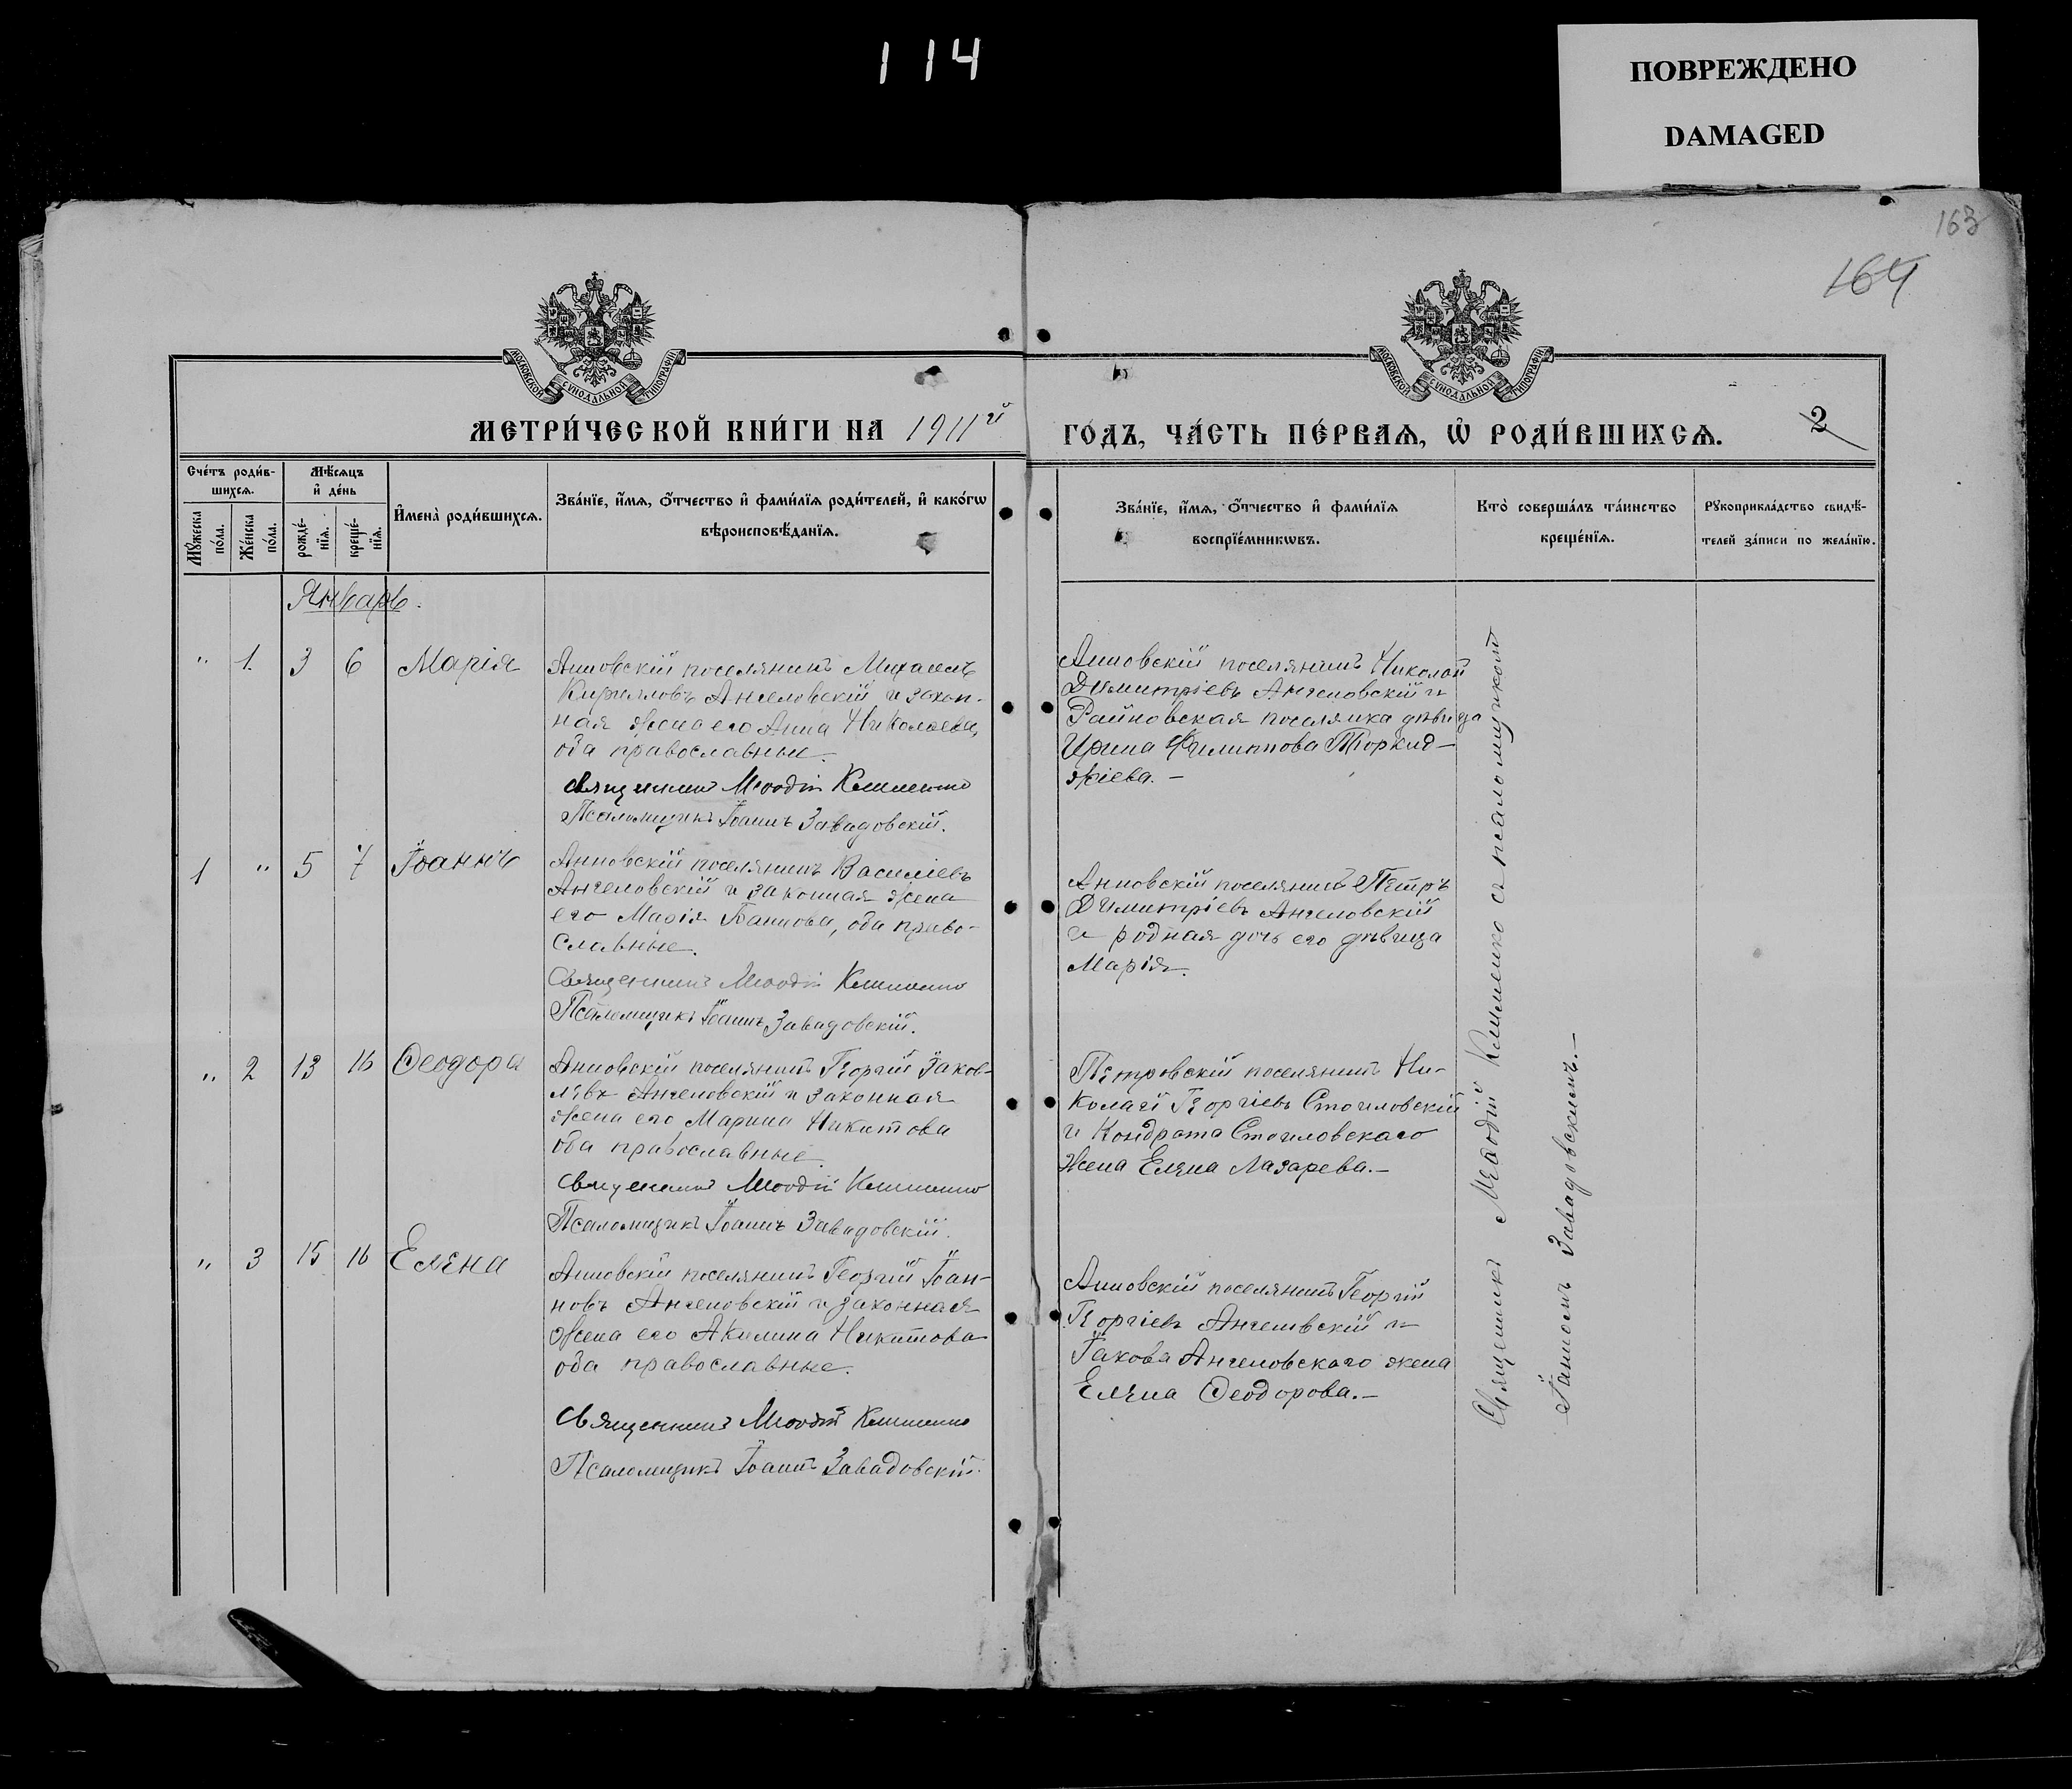 114
ПОВРЕЖДЕНО
DAMAGED
163
164
МОСКОВСКОЙ СУНОДАЛЬНОЙ ТИПОГРАФІИ
МОСКОВСКОЙ СУНОДАЛЬНОЙ ТИПОГРАФІИ
МЕТРИ́ЧЕСКОЙ КНИ́ГИ НА 1911й
ГО́ДЪ, ЧА́СТЬ ПЕ́РВАѦ, Ѡ҆ РОДИ́ВШИХСѦ.
2
Сче́тъ роди́в-
шихсѧ.
Мѣ́сѧцъ
и҆ де́нь
Мꙋ́жеска
по́ла.
Же́нска
по́ла.
рожде́-
нїѧ.
креще́-
нїѧ.
И҆мена̀ роди́вшихсѧ.
Зва́нїе, и҆́мѧ, ѻ҆́тчество и҆ фами́лїѧ роди́телей, и҆ како́гѡ
вѣроисповѣ́данїѧ.
Зва́нїе, и҆́мѧ, ѻ҆́тчество и҆ фами́лїѧ
воспрїе́мникѡвъ.
Кто̀ соверша́лъ та́инство
креще́нїѧ.
Рꙋкоприкла́дство свидѣ́-
телей за́писи по жела́нїю.
Январь.
" 1. 3 6 Марія
Анновскій поселянинъ Михаилъ
Кирилловъ Ангеловскій и закон-
ная жена его Анна Николаева,
оба православные.
Священникъ Меѳодій Клименко
Псаломщикъ Іоаннъ Завадовскій.
Анновскій поселянинъ Николай
Димитріевъ Ангеловскій и
Райновская поселянка дѣвица
Ирина Филиппова Тюркид-
жіева.-
1 " 5 7 Іоаннъ
Анновскій поселянинъ Василіевъ
Ангеловскій и законная жена
его Марія Іоаннова, оба право-
славные.
Священникъ Меѳодій Клименко
Псаломщикъ Іоаннъ Завадовскій.
Анновскій поселянинъ Петръ
Димитріевъ Ангеловскій
и родная дочь его дѣвица
Марія.
" 2 13 16 Ѳеодора
Анновскій поселянинъ Георгій Іаков-
левъ Ангеловскій и законная
жена его Марина Никитова
оба православные.
Священникъ Меѳодій Клименко
Псаломщикъ Іоаннъ Завадовскій.
Петровскій поселянинъ Ни-
колай Георгіевъ Стоиловскій
и Кондрата Стоиловскаго
жена Елена Лазарева.-
" 3 15 16 Елена
Анновскій поселянинъ Георгій Іоан-
новъ Ангеловскій и законная
жена его Акилина Никитова
оба православные.
Священникъ Меѳодій Клименко
Псаломщикъ Іоаннъ Завадовскій.
Анновскій поселянинъ Георгій
Георгіевъ Ангеловскій и
Іакова Ангеловского жена
Елена Ѳеодорова.-
Священникъ Меѳодій Клименко съ псаломщикомъ
Іоанномъ Завадовскимъ.-